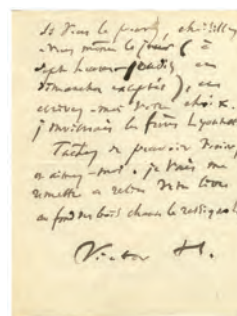 Si vous le pouvez, choisissez
vous même le jour ( à
sept heures jeudis ou
dimanches exceptés ), en
écrivez-moi votre choix.
j'inviterais les frères Lyonnet
Tâchez de pouvoir venir,
et aimez-moi. je vais me
remettre à relire votre livre
au fond des bois
Victor H.